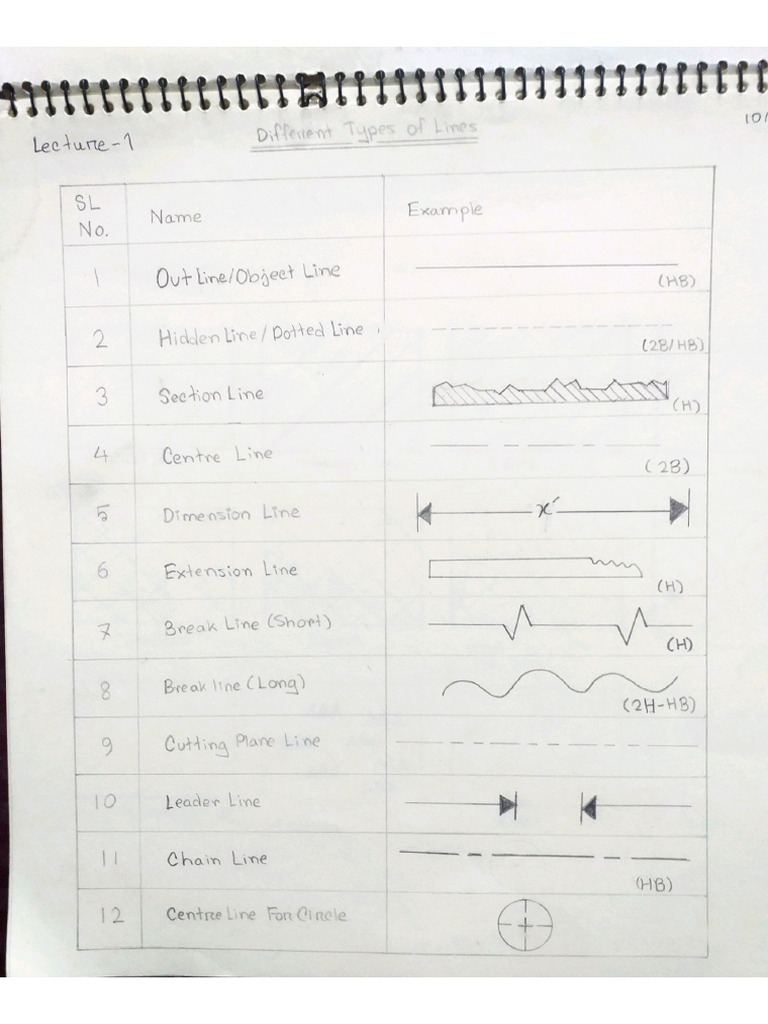 Lecture-1
Different Types of Lines
10/
SL No. Name Example
1 Out Line/Object Line (HB)
2 Hidden Line/Dotted Line (2B/HB)
3 Section Line (H)
4 Centre Line (2B)
5 Dimension Line x'
6 Extension Line (H)
7 Break Line (Short) (H)
8 Break line (Long) (2H-HB)
9 Cutting Plane Line
10 Leader Line
11 Chain Line (HB)
12 Centre Line For Circle